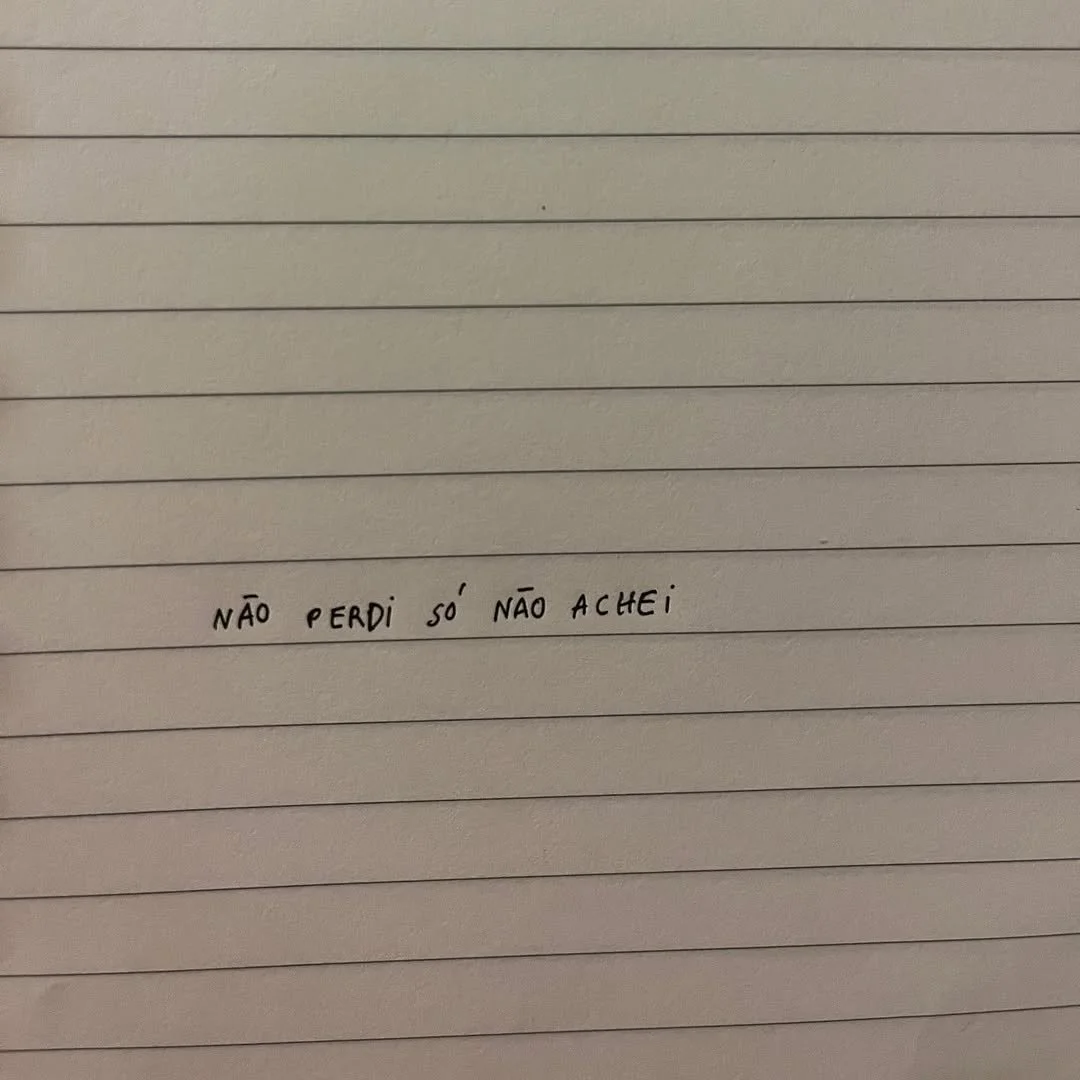 NÃO PERDi SÓ NÃO ACHEi